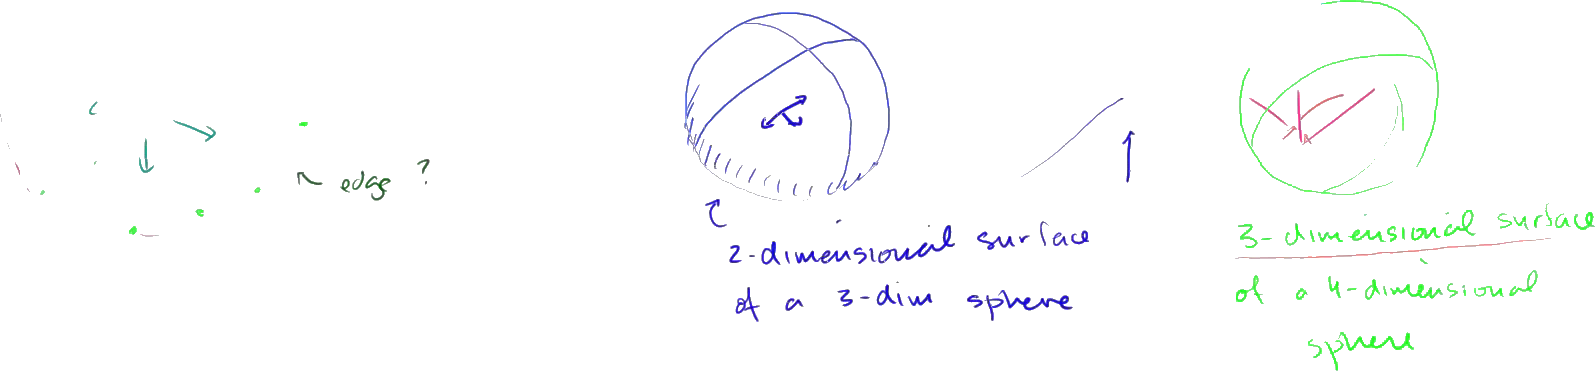 edge ?
2-dimensional surface
of a 3-dim sphere
3-dimensional surface
of a 4-dimensional
sphere